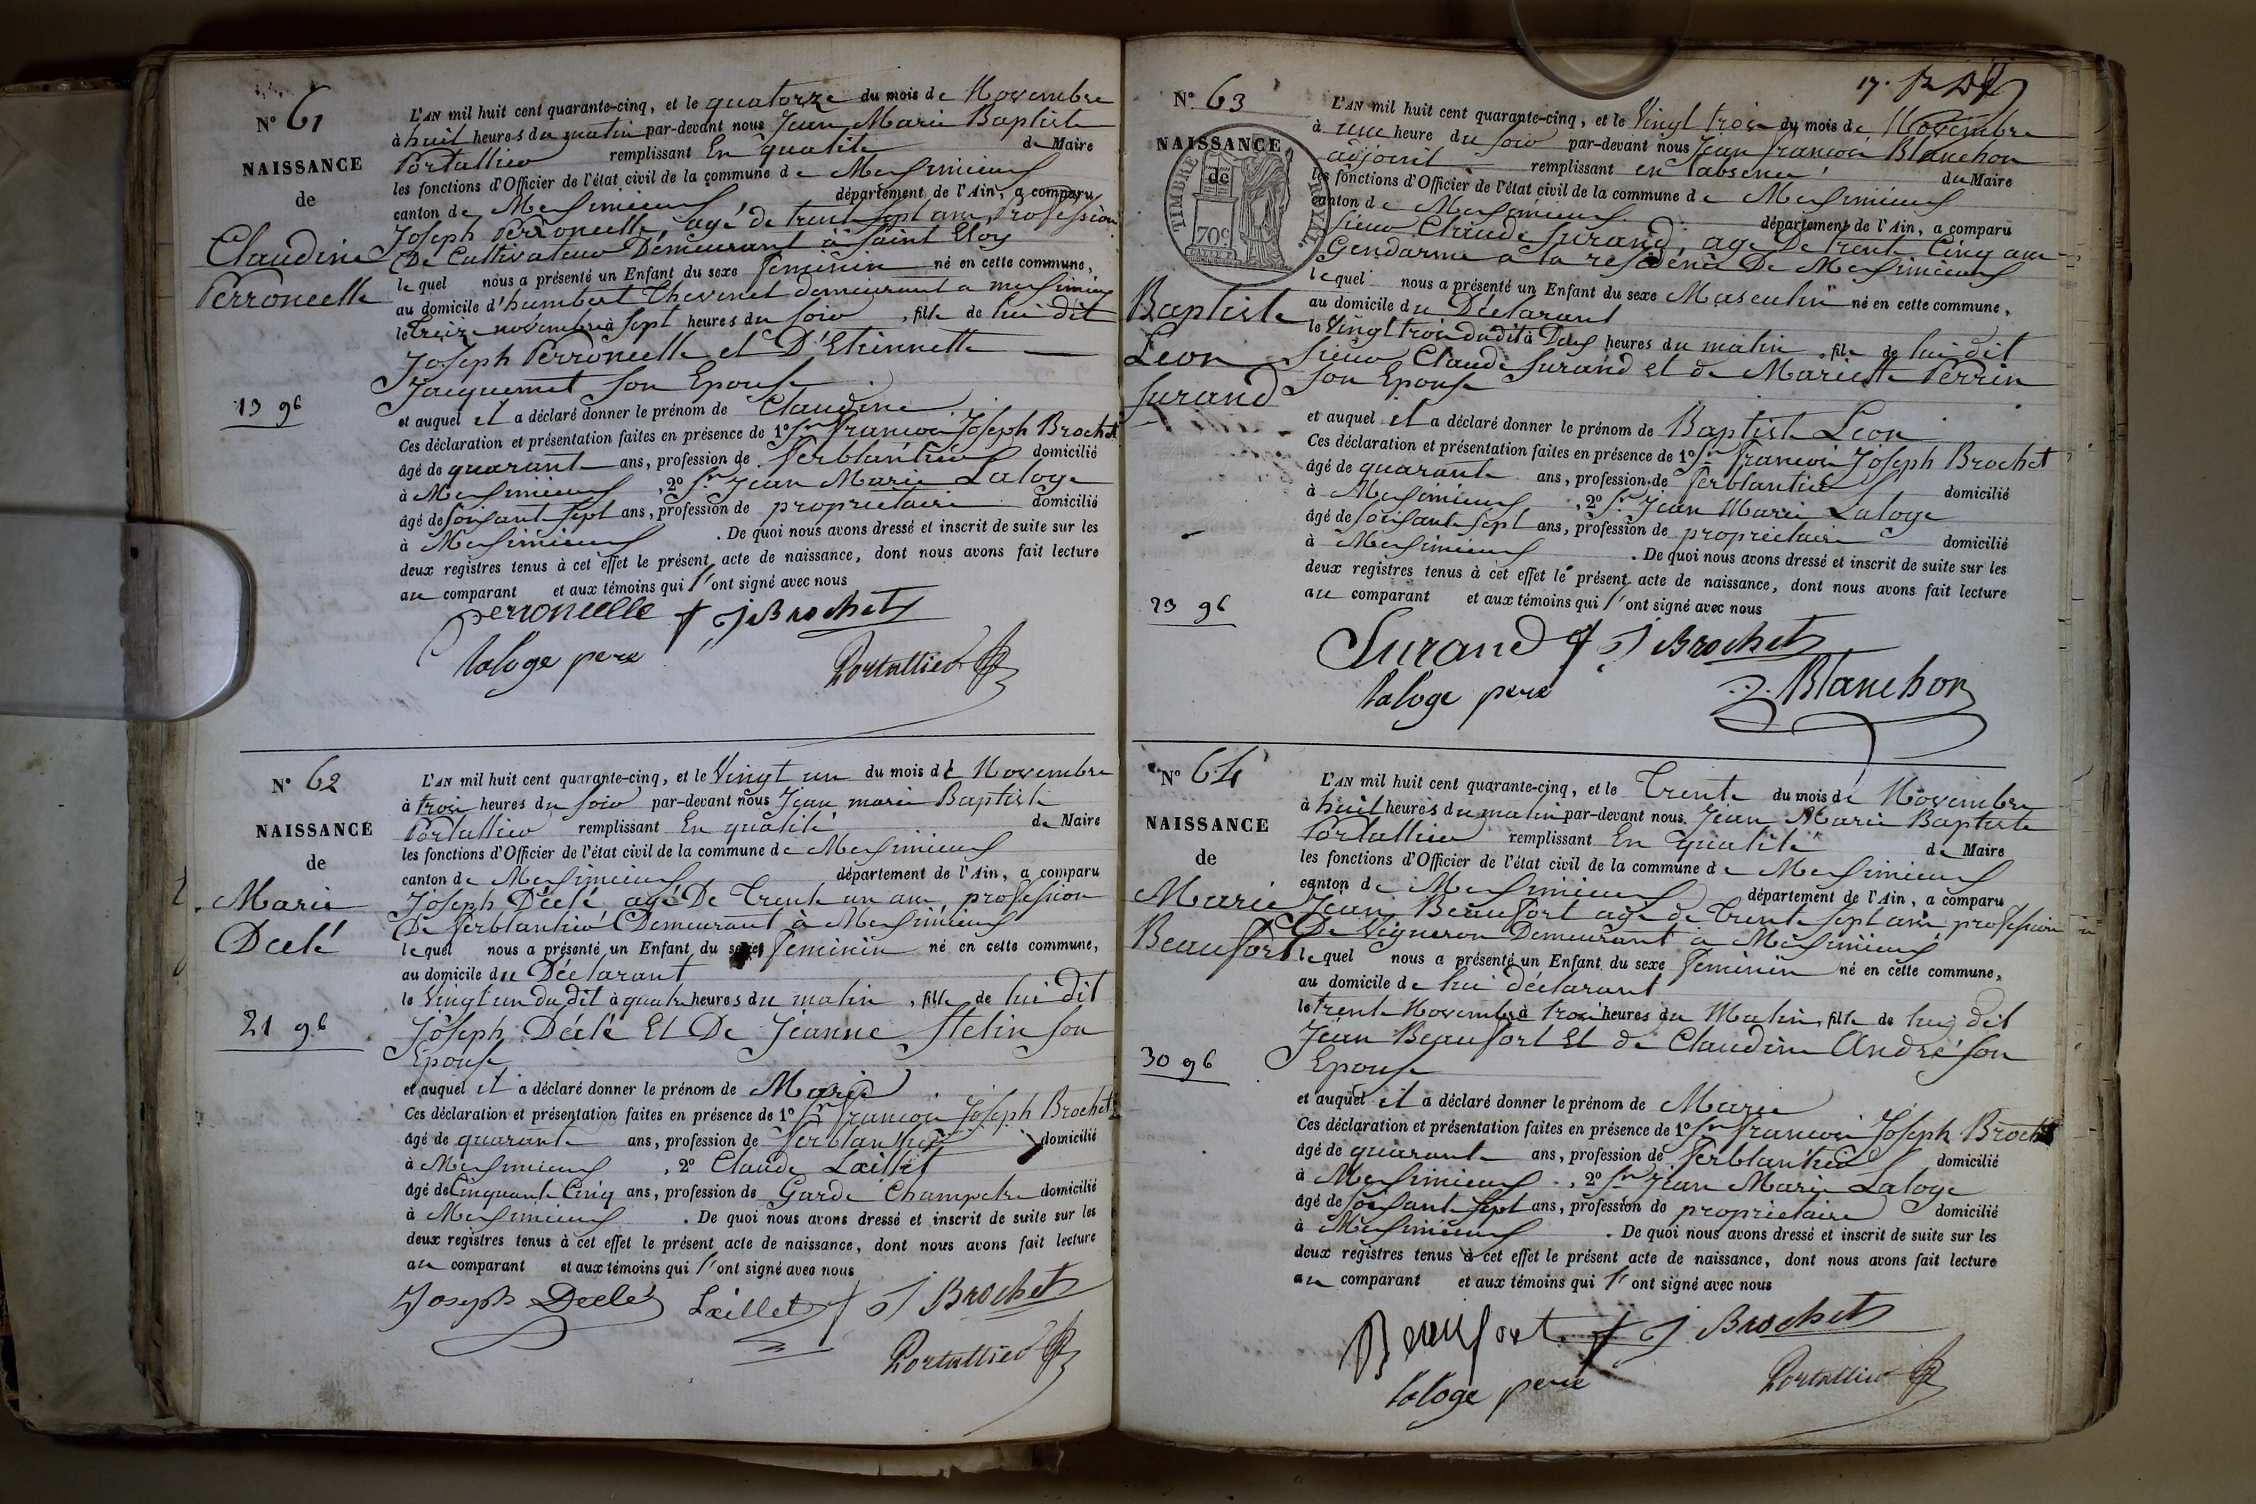 N° 61
NAISSANCE
de
Claudine
Perroncelle
13 9b
L'AN mil huit cent quarante-cinq, et le quatorze du mois de Novembre
à huit heures du matin par-devant nous Jean Marie Baptiste
Portallier remplissant En qualité de Maire
les fonctions d'Officier de l'état civil de la commune de Meximieux
canton de Meximieux département de l'Ain, a comparu
Joseph Perroncelle agé de trente sept ans, Profession
De Cultivateur Demeurant à Saint Eloy
lequel nous a présenté un Enfant du sexe feminin né en cette commune,
au domicile d'humbert Thevenet demeurant a meximieux
le Treize novembre à sept heures du soir, fille de lui dit
Joseph Perroncelle et D'Etiennette
Jacquemet son Epouse
et auquel il a déclaré donner le prénom de Claudine
Ces déclaration et présentation faites en présence de 1° Sr françois Joseph Brochet
âgé de quarante ans, profession de ferblantier domicilié
à Meximieux, 2° Sr Jean Marie Laloge
âgé de soixante sept ans, profession de proprietaire domicilié
à Meximieux. De quoi nous avons dressé et inscrit de suite sur les
deux registres tenus à cet effet le présent acte de naissance, dont nous avons fait lecture
au comparant et aux témoins qui l'ont signé avec nous
perroncelle f j Brochet
laloge pere Portallier
N° 62
NAISSANCE
de
Marie
Déclé
21 9b
L'AN mil huit cent quarante-cinq, et le Vingt un du mois de Novembre
à trois heures du soir par-devant nous Jean marie Baptiste
Portallier remplissant En qualité de Maire
les fonctions d'Officier de l'état civil de la commune de Meximieux
canton de Meximieux département de l'Ain, a comparu
Joseph Déclé agé De Trente un ans, profession
De ferblantier Demeurant à Meximieux
lequel nous a présenté un Enfant du sexe feminin né en cette commune,
au domicile du Déclarant
le Vingt un du dit à quatre heures du matin, fille de lui dit
Joseph Déclé Et De Jeanne Stelin son
Epouse
et auquel il a déclaré donner le prénom de Marie
Ces déclaration et présentation faites en présence de 1° Sr françois Joseph Brochet
âgé de quarante ans, profession de ferblantier domicilié
à Meximieux, 2° Claude Laillet
âgé de Cinquante Cinq ans, profession de Garde Champetre domicilié
à Meximieux. De quoi nous avons dressé et inscrit de suite sur les
deux registres tenus à cet effet le présent acte de naissance, dont nous avons fait lecture
au comparant et aux témoins qui l'ont signé avec nous
Joseph Declé Laillet f j Brochet
Portallier
17.
N° 63
NAISSANCE
de
TIMBRE ROYAL
70c
Baptiste
Leon
Surand
23 9b
L'AN mil huit cent quarante-cinq, et le Vingt trois du mois de Novembre
à une heure du soir par-devant nous Jean françois Blanchon
adjoint remplissant en l'absence du Maire
les fonctions d'Officier de l'état civil de la commune de Meximieux
canton de Meximieux département de l'Ain, a comparu
Sieur Claude Surand, age De trente Cinq ans
Gendarme a la residence De Meximieux
lequel nous a présenté un Enfant du sexe Masculin né en cette commune,
au domicile du Déclarant
le Vingt trois du dit à Deux heures du matin, fils de lui dit
Sieur Claude Surand et de Mariette Perrin
son Epouse
et auquel il a déclaré donner le prénom de Baptiste Leon
Ces déclaration et présentation faites en présence de 1° Sr françois Joseph Brochet
âgé de quarante ans, profession de ferblantier domicilié
à Meximieux, 2° Sr Jean Marie Laloge
âgé de soixante sept ans, profession de proprietaire domicilié
à Meximieux. De quoi nous avons dressé et inscrit de suite sur les
deux registres tenus à cet effet le présent acte de naissance, dont nous avons fait lecture
au comparant et aux témoins qui l'ont signé avec nous
Surand f j Brochet
laloge pere Blanchon
N° 64
NAISSANCE
de
Marie
Beaufort
30 9b
L'AN mil huit cent quarante-cinq, et le Trente du mois de Novembre
à huit heures du matin par-devant nous Jean Marie Baptiste
Portallier remplissant En qualité de Maire
les fonctions d'Officier de l'état civil de la commune de Meximieux
canton de Meximieux département de l'Ain, a comparu
Jean Beaufort agé de Trente sept ans profession
De Vigneron Demeurant à Meximieux
lequel nous a présenté un Enfant du sexe feminin né en cette commune,
au domicile de lui déclarant
le trente Novembre à trois heures du Matin, fille de lui dit
Jean Beaufort Et de Claudine André son
Epouse
et auquel il a déclaré donner le prénom de Marie
Ces déclaration et présentation faites en présence de 1° Sr françois Joseph Brochet
âgé de quarante ans, profession de ferblantier domicilié
à Meximieux, 2° Sr Jean Marie Laloge
âgé de soixante sept ans, profession de proprietaire domicilié
à Meximieux. De quoi nous avons dressé et inscrit de suite sur les
deux registres tenus à cet effet le présent acte de naissance, dont nous avons fait lecture
au comparant et aux témoins qui l'ont signé avec nous
Beaufort f j Brochet
laloge pere Portallier